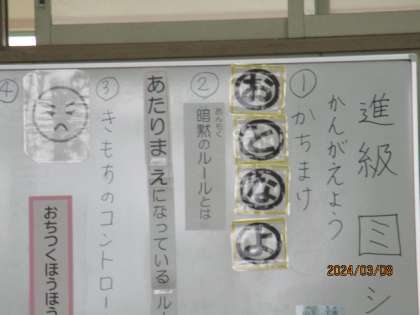 進級 ミシ
かんがえよう
①かちまけ
おとなよ
②
暗黙のルールとは
あんもく
あたりまえになっている ル
③きもちのコントロー
④
おちつくほうほう
2024/03/08